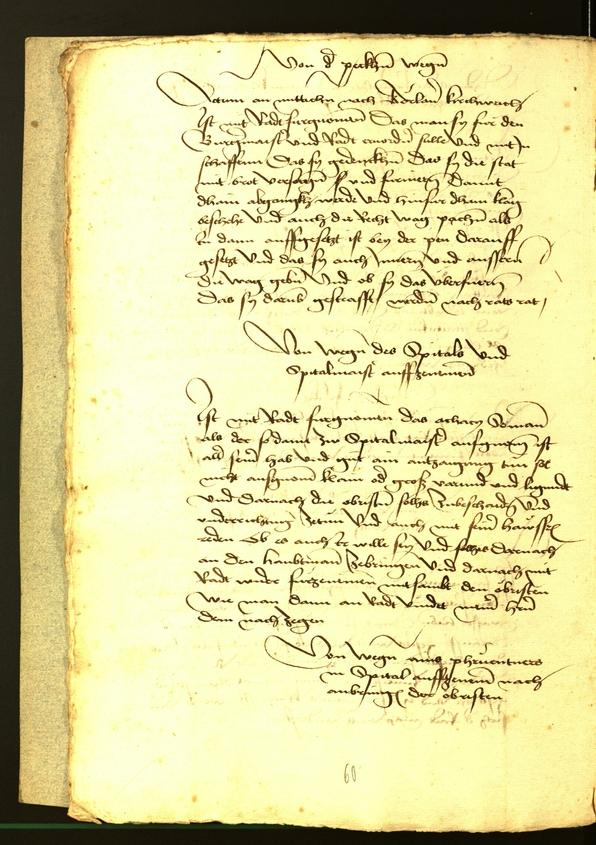 Von d peckhen wegen
Actum an mittichen nach kirchweich
Ist mit Radt furgenomen Das man sy fur den
Burgermaister und Radt ervordern solle und mit In
schaffenn Das sy gedenckhen Das sy die stat
mit brot versorgen und furnemen Damit
dhain abganngkh werde und hinfur dhain klag
beschehe Und auch die Recht wag pachen als
In dann auffgesetzt ist bey der pen darauff
gesetzt Und das sy auch Innern und aussern
die wag geben Und ob sy das uberfueren
Das sy darumb gestrafft werden nach rats rat
Von wegen des Spitals und
Spitalmaister auffzenemen
Ist mit Radt furgenomen das achacy
als der so dann zu Spitalmaister aufgenomen ist
all sein hab und gut ain antzaigung tun sol
nicht ausgenomen klain oder gros varund und ligund
und darnach die obristen solhs zubeschauen und
underrichtung zetun Und auch mit seiner hausfrau
reden Ob es auch Ir wille sey Und solhs darnach
an den haubtman zebringen Und darnach mit
Radt wider furzenemen mitsambt den obristen
Wie man dann an Radt vindet
dem nach zegen
Von wegen ains phruentners
in Spital auffzenemen nach
anbringen der obristen
60